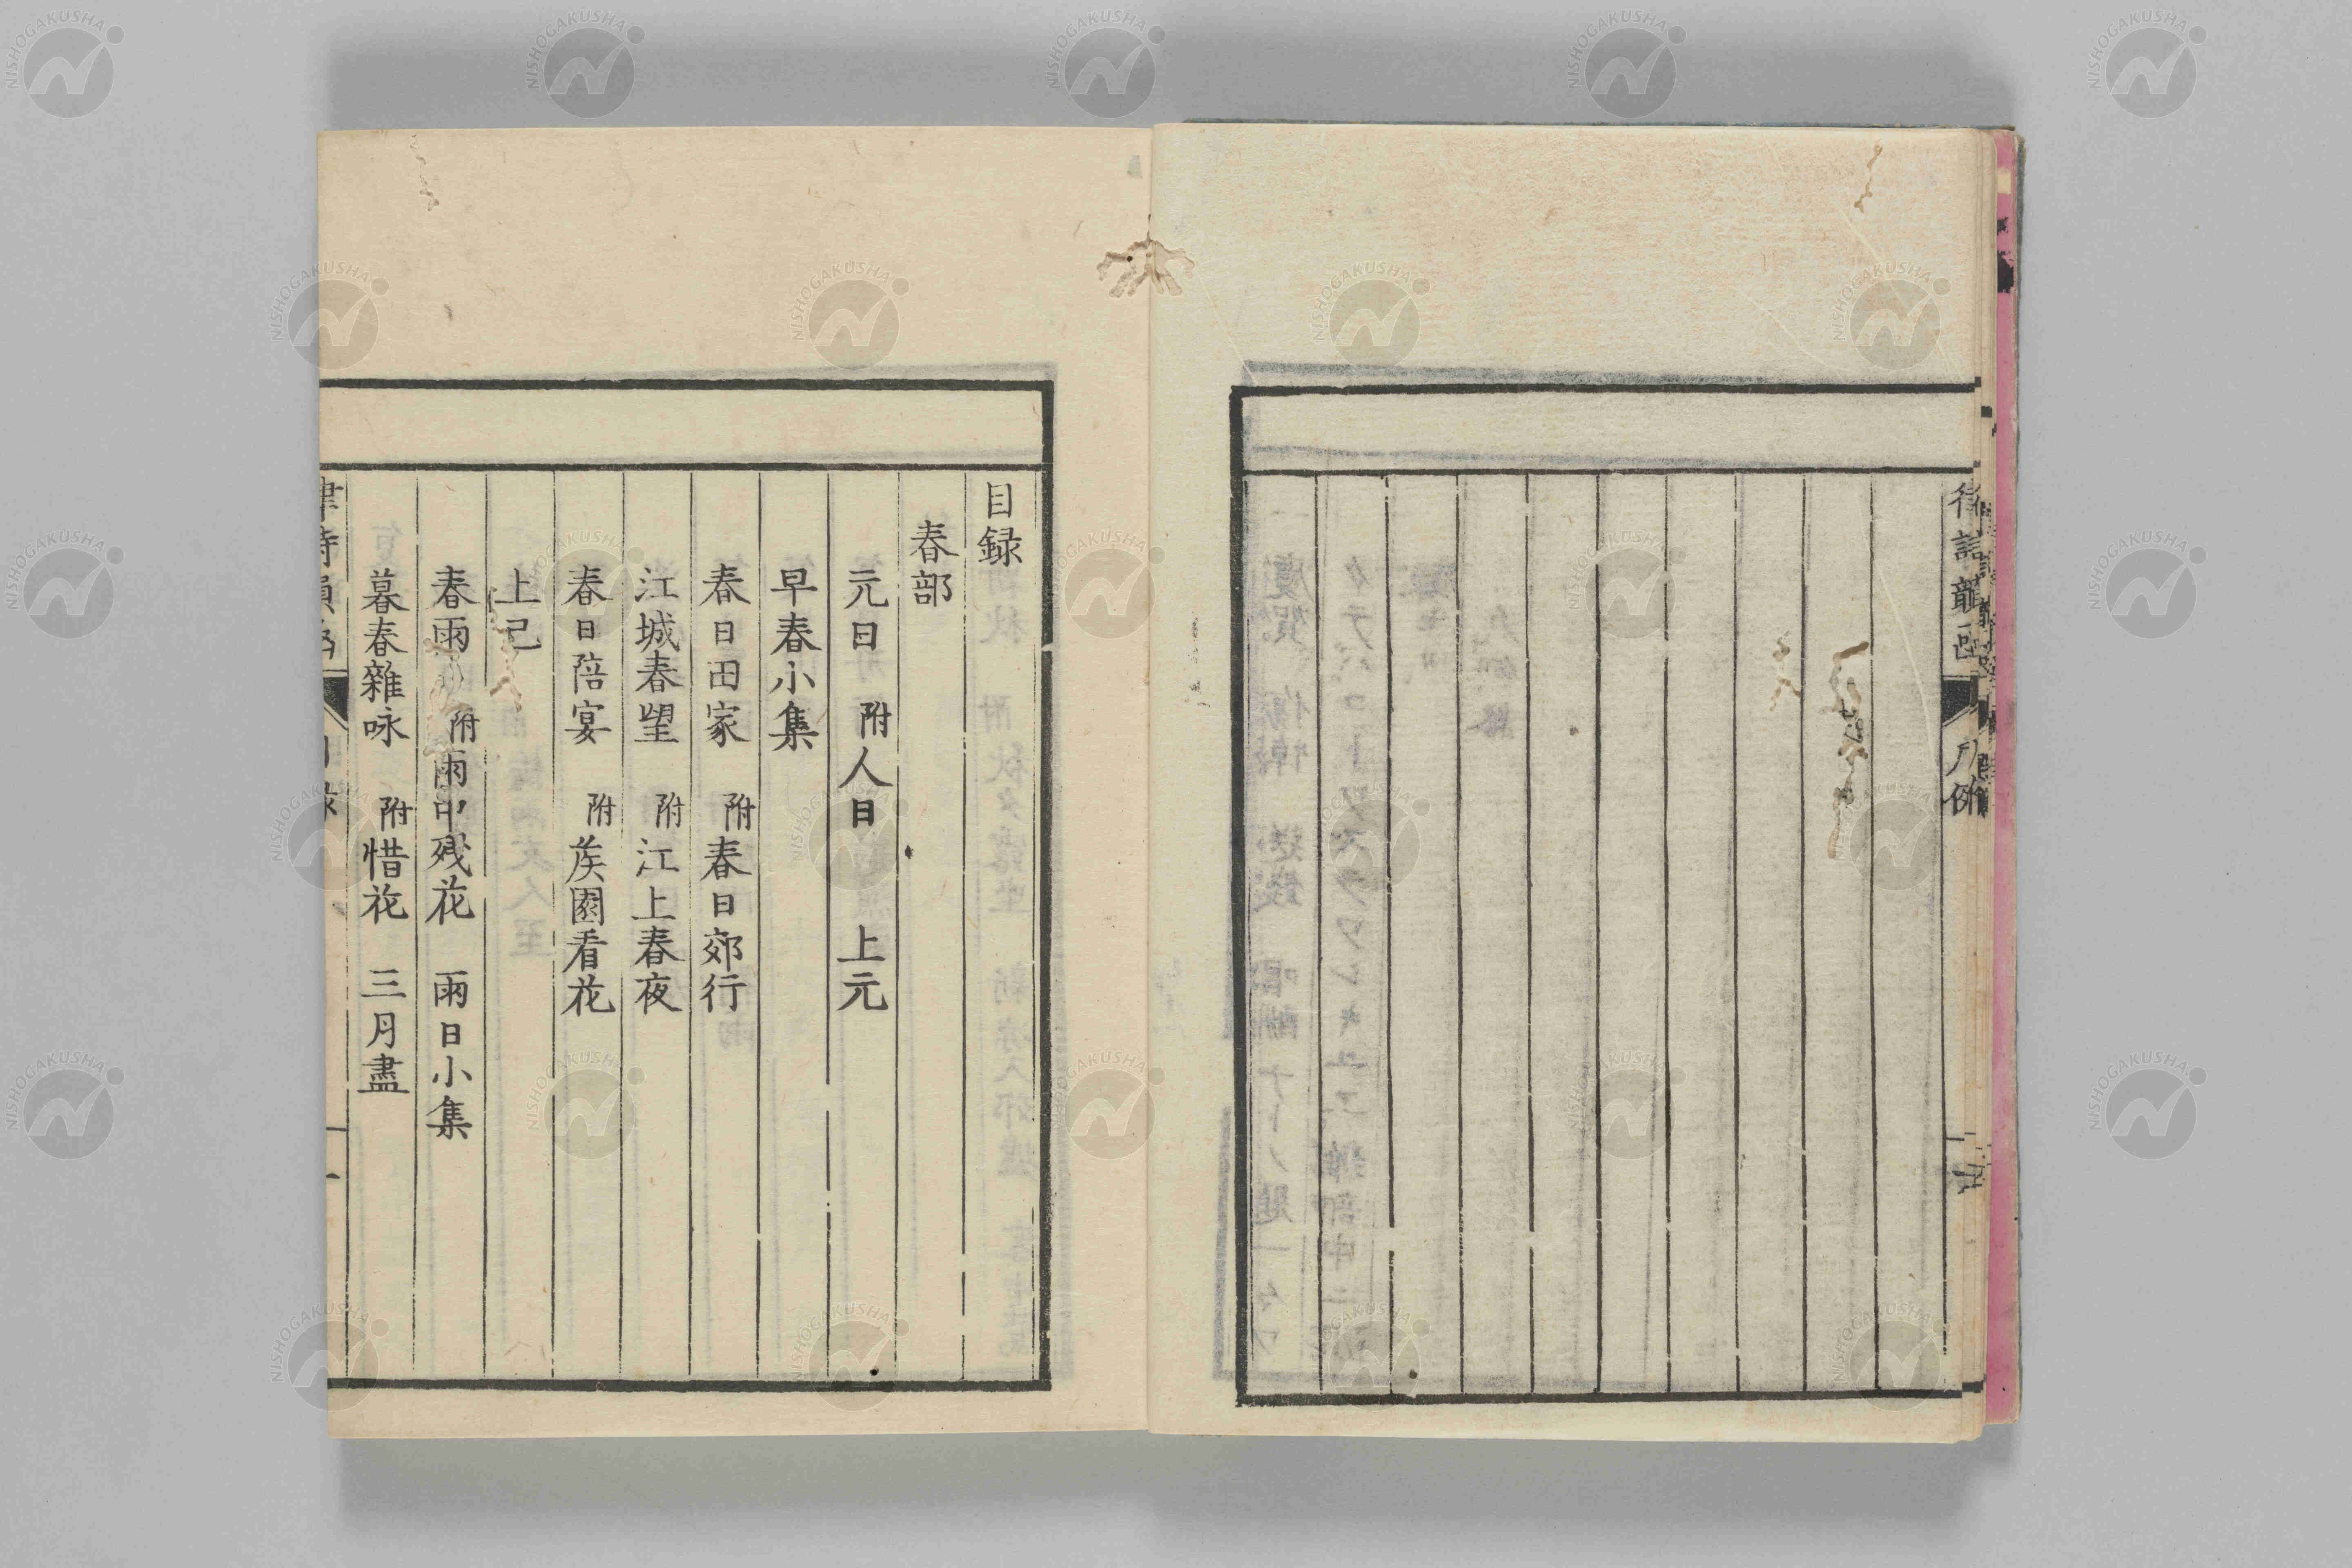 凡例
目録
春部
元日 附人日 上元
早春小集
春日田家 附春日郊行
江城春望 附江上春夜
春日陪宴 附矦園看花
上己
春雨 附雨中残花 雨日小集
暮春雜咏 附惜花 三月盡
NISHOGAKUSHA